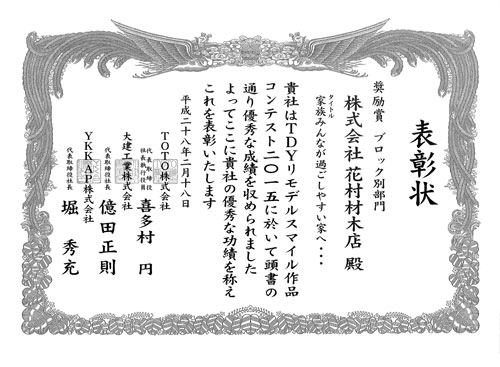 表彰状
奨励賞 ブロック別部門
株式会社 花村材木店 殿
タイトル
家族みんなが過ごしやすい家へ・・・
貴社はTDYリモデルスマイル作品
コンテスト二〇一五に於いて頭書の
通り優秀な成績を収められました
よってここに貴社の優秀な功績を称え
これを表彰いたします
平成二十八年二月十八日
TOTO株式会社
代表取締役
社長執行役員
喜多村 円
大建工業株式会社
代表取締役社長
億田正則
YKK AP株式会社
代表取締役社長
堀 秀充